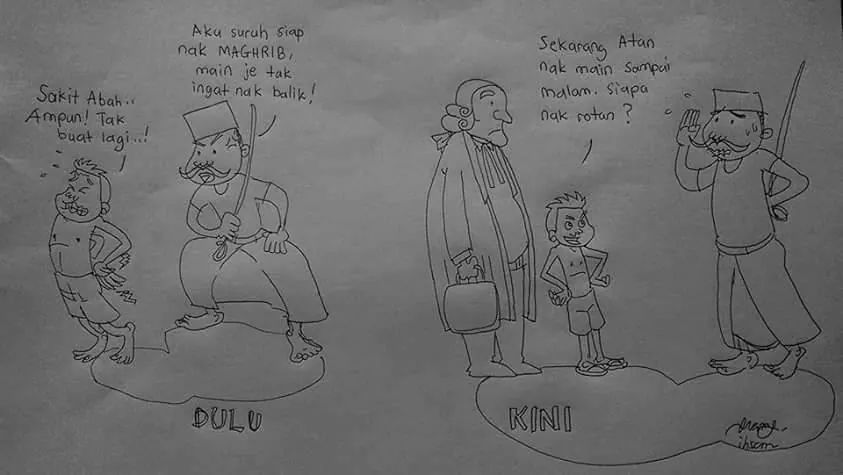 Sakit Abah..
Ampun! Tak
buat lagi..!
Aku suruh siap
nak MAGHRIB,
main je tak
ingat nak balik!
Sekarang Atan
nak main sampai
malam. Siapa
nak rotan?
DULU
KINI
ihsan